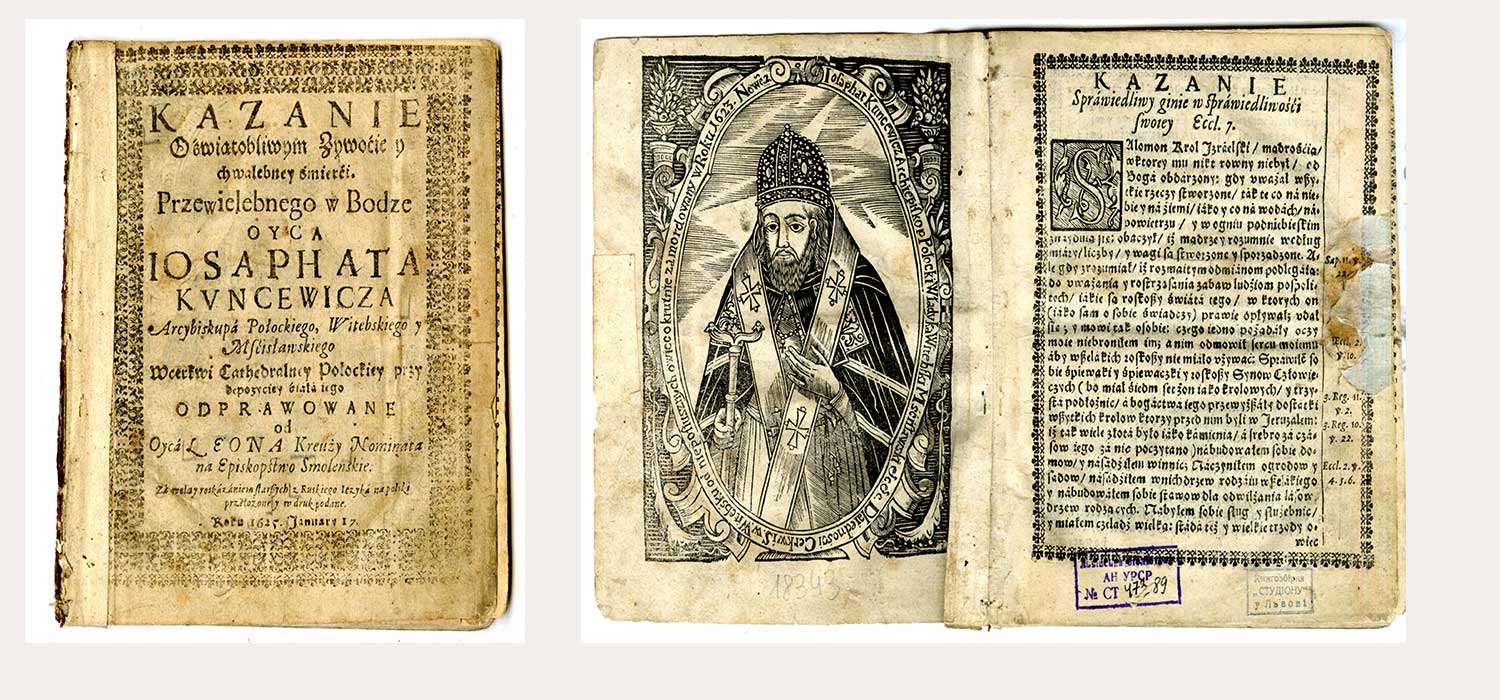 KAZANIE
O świątobliwym Zywoćie y
chwalebney śmierći.
Przewielebnego w Bodze
OYCA
IOSAPHATA
KVNCEWICZA
Arcybiskupá Połockiego, Witebskiego y
Mśćisławskiego
Wcerkwi Cathedralney Połockiey przy
depozyciey ćiáłá iego
ODPRAWOWANE
od
Oycá LEONA Kreuzy Nominata
na Episkopstwo Smolenskie.
Zá wolą y roskazániem stárszych z Ruskiego Ięzyká ná polski
przełożone y w druk podane.
Roku 1625. January 17.
Iosaphat Kuncewicz Archiepiskop Połocki Władyka Witebski Mscisławski etc. dla Iednosci Cerkwi S. w Witebsku od nieposłusznych owiec okrutnie zamordowany w Roku 1623. Nowēb 12
18343
KAZANIE
Spráwiedliwy ginie w spráwiedliwośći
swoiey Eccl. 7.
SAlomon Krol Izráelski / mądrośćią /
w ktorey mu nikt rowny niebył / od
Bogá obdárzony: gdy uważał wszy-
tkie rzeczy stworzone / ták te co ná nie-
bie y ná źiemi / iáko y co ná wodách / ná
powietrzu / y w ogniu podniebieskim
znáyduią się: obaczył / iż mądrze y rozumnie według
miáry / liczby / y wagi są stworzone y sporządzone. A-
le gdy zrozumiał / iż rozmáitym odmiánom podlegáią:
do uważánia y rostrząsánia zabaw ludźiom pospoli-
tych / iákie są roskoszy świátá tego / w ktorych on
(iáko sam o sobie świádczy) práwie opływał / udał
się y mowi ták o sobie: czego iedno pożądáły oczy
moie niebroniłem im; á nim odmowił sercu moiemu
áby wszelákich roskoszy nie miáło używáć: Spráwiłē so
bie śpiewaki y śpiewaczki y roskoszy Synow Człowie-
czych (bo miał śiedm set żon iáko krolowych / y trzy-
stá podłożnic / á bogáctwá iego przewyższáły dostátki
wszytkich krolow ktorzy przed nim byli w Jeruzalem:
iż ták wiele złotá było iáko kámienia / á srebro zá czá-
sow iego zá nic poczytano) nábudowałem sobie do-
mow / y násádźiłem winnic; Náczyniłem ogrodow y
sadow / násádźiłem w nich drzew rodzáiu wszelákiego
y nábudowałem sobie stáwow dla odwilżánia lásow,
drzew rodzących. Nábyłem sobie sług y służebnic /
y miałem czeladź wielką: stádá też y wielkie trzody o-
wiec
Sap. 11. v.
22.
Eccl. 2.
v. 10.
3. Reg. 11.
v. 2.
3. Reg. 10.
v. 22.
Eccl. 2. v.
4. 5. 6.
АН УРСР
№ СТ 89
Книгозбірня
„СТУДІОНУ"
у Львові